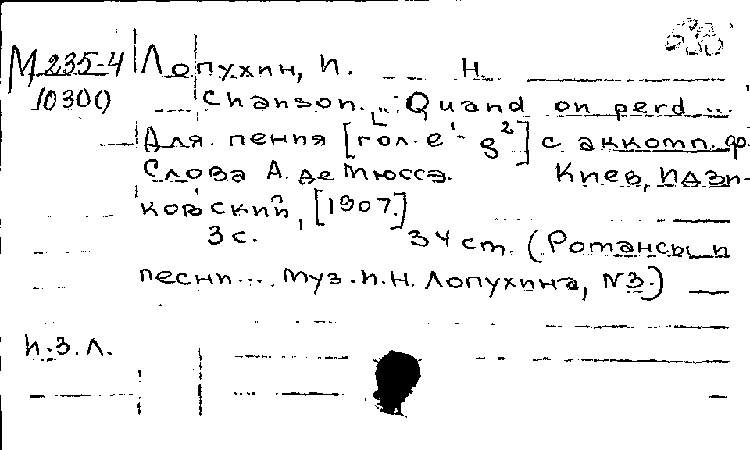 М 235-4 Лопухин, И. Н
10300 Chanson. „Quand on perd...
Для пения [гол. e¹- g²] с аккомп. ф.
Слова А. де Мюссэ. Киев, Идзи-
ковский, [1907.]
3 с. 34 ст. (Романсы и
песни... муз. И. Н. Лопухина, N3.)
И.З.Л.